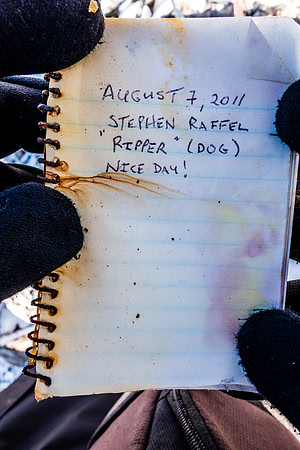 AUGUST 7, 2011
STEPHEN RAFFEL
„RIPPER" (DOG)
NICE DAY!